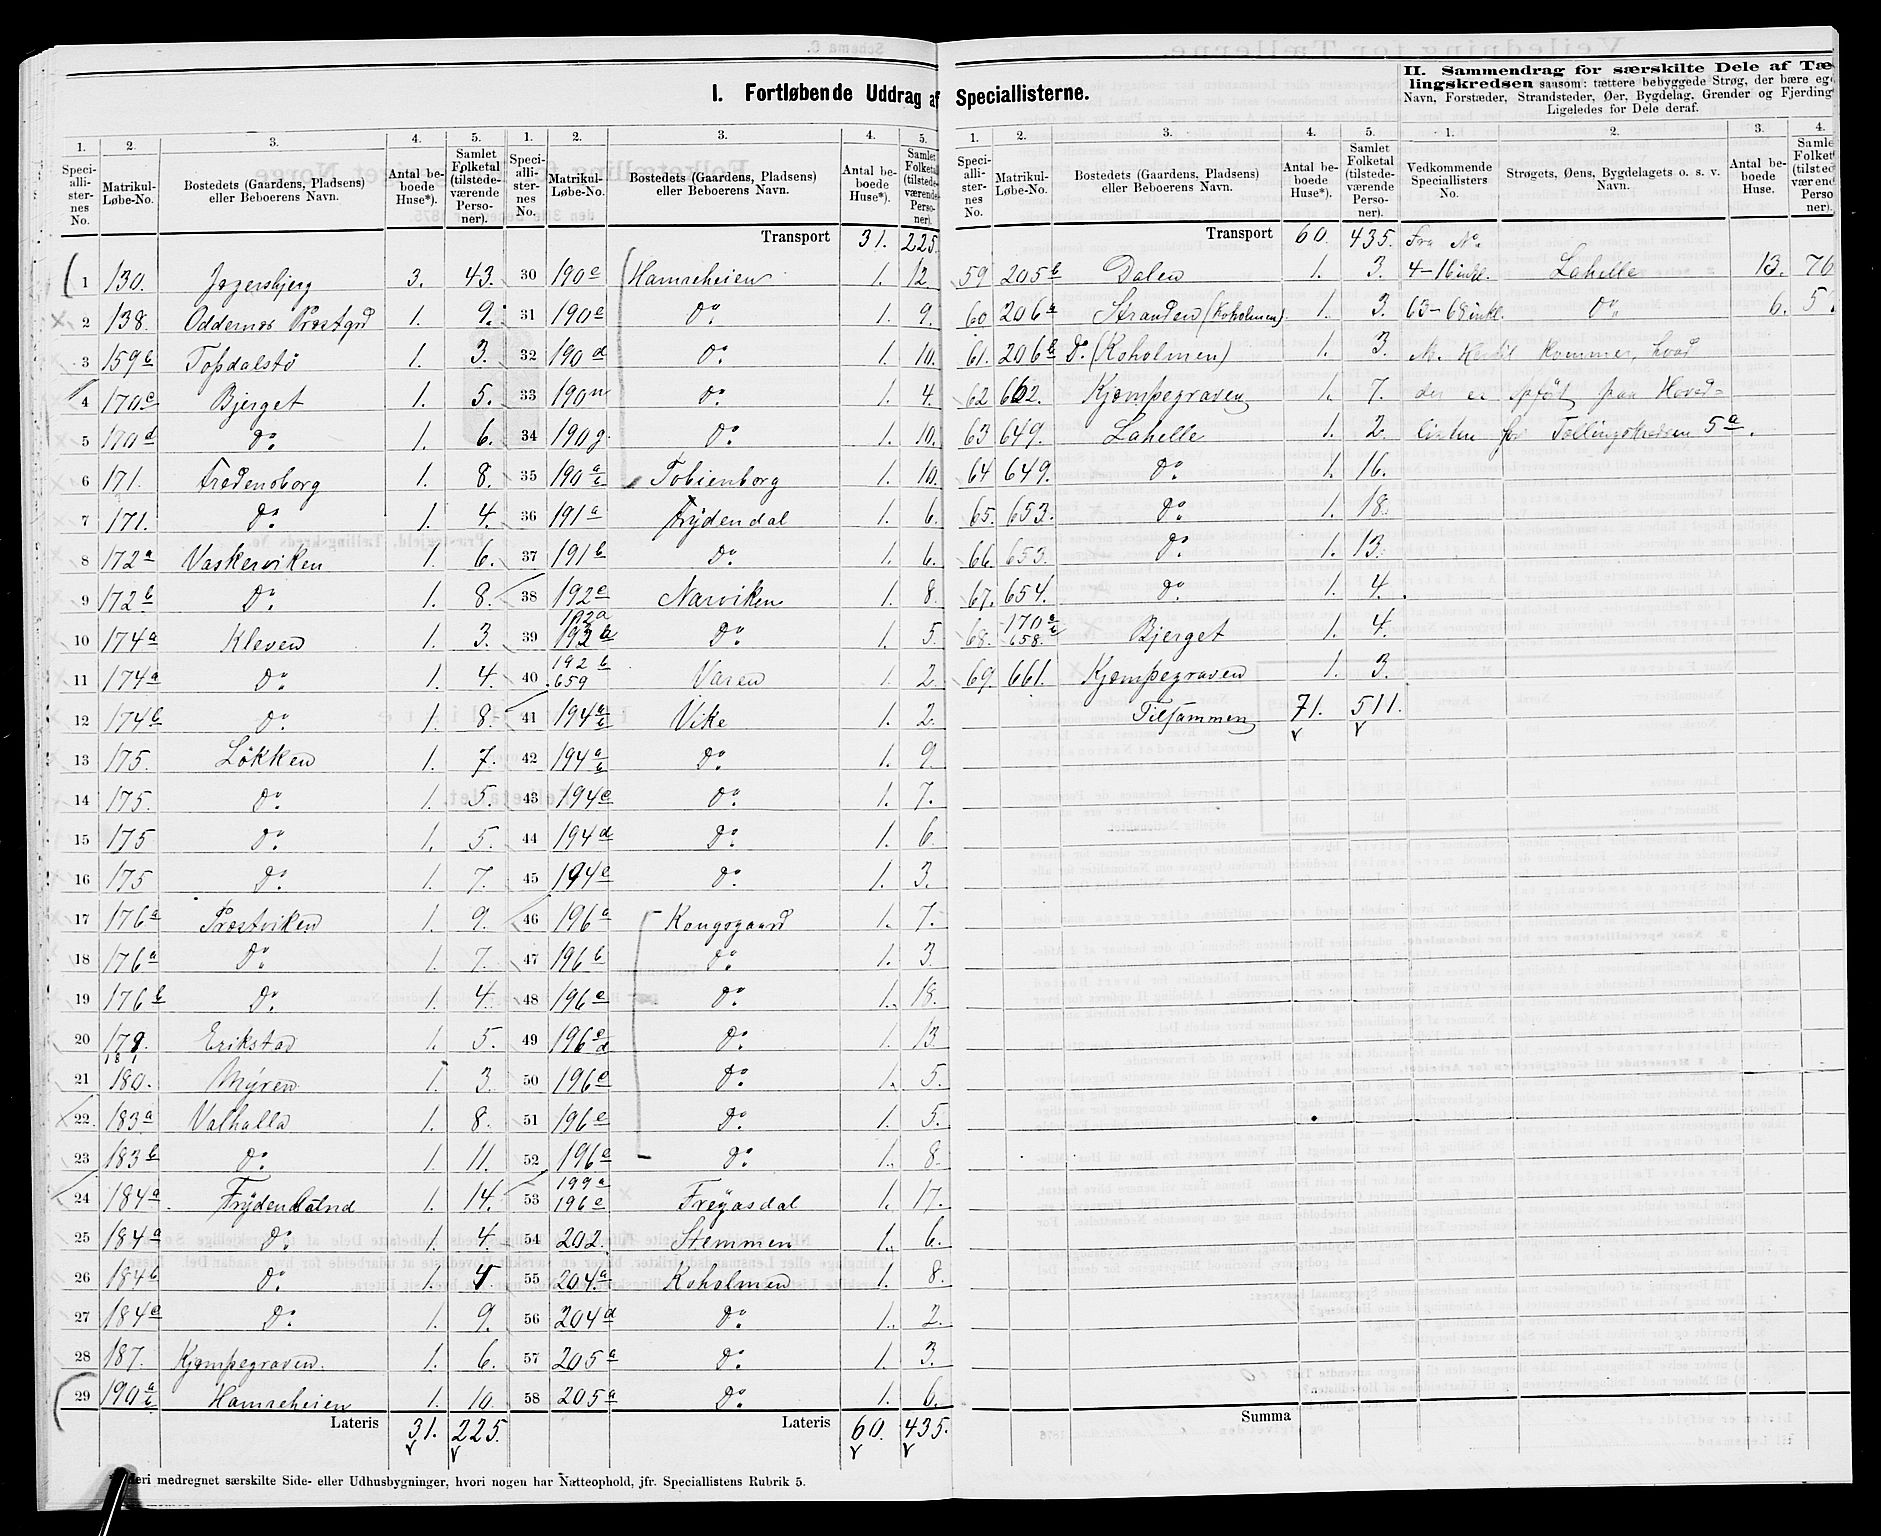 I. Fortløbende Uddrag af Speciallisterne.
1. 2. 3. 4. 5.
Speciallisternes No. Matrikul-Løbe-No. Bostedets (Gaardens, Pladsens) eller Beboerens Navn. Antal beboede Huse*). Samlet Folketal (tilstedeværende Personer).
1 130. Jegersbjerg 3. 43.
2 138. Oddernes Præstgrd 1. 9.
3 159b Topdalstö 1. 3.
4 170c Bjerget 1. 5.
5 170d Do. 1. 6.
6 171. Fredensborg 1. 8.
7 171. Do. 1. 4.
8 172a Vaskerviken 1. 6.
9 172b Do. 1. 8.
10 174a Kleven 1. 3.
11 174a Do. 1. 4.
12 174b Do. 1. 8.
13 175. Løkken 1. 7.
14 175. Do. 1. 5.
15 175 Do. 1. 5.
16 175 Do. 1. 7.
17 176a Præstviken 1. 9.
18 176a Do. 1. 7.
19 176b Do. 1. 4.
20 179. 181 Erikstad 1. 5.
21 180. Myren 1. 3.
22 183a Valhalla 1. 8.
23 183b Do. 1. 11.
24 184a Frydenlund 1. 14.
25 184a Do. 1. 4.
26 184b Do. 1. 4.
27 184c Do. 1. 9.
28 187. Kjempegraven. 1. 6.
29 190a b Hamreheien 1. 10.
Lateris 31. 225.
1. 2. 3. 4. 5.
Speciallisternes No. Matrikul-Løbe-No. Bostedets (Gaardens, Pladsens) eller Beboerens Navn. Antal beboede Huse*). Samlet Folketal (tilstedeværende Personer).
Transport 31. 225.
30 190c Hamreheien 1. 12.
31 190c Do. 1. 9.
32 190d Do. 1. 10.
33 190n Do. 1. 4.
34 190g. Do. 1. 10.
35 190a b Tobienborg 1. 10.
36 191a Frydendal 1. 6.
37 191b Do. 1. 6.
38 192c Narviken 1. 8.
39 192a 193b Do. 1. 5.
40 192b 659 Varen 1. 2.
41 194a b Vike 1. 2.
42 194a b Do. 1. 9.
43 194c Do. 1. 7.
44 194d Do. 1. 6.
45 194e Do. 1. 3.
46 196a Kongsgaard 1. 7.
47 196b Do. 1. 3
48 196c Do. 1. 18.
49 196c d Do. 1. 13
50 196e Do. 1. 5.
51 196e Do. 1. 5.
52 196e Do. 1. 8.
53 199a 196e Freyasdal 1. 17.
54 202. Stemmen 1. 6.
55 204a Koholmen 1. 8.
56 204d Do. 1. 2.
57 205a Do. 1. 3.
58 205a Do. 1. 6.
Lateris 60. 435.
1. 2. 3. 4. 5.
Speciallisternes No. Matrikul-Løbe-No. Bostedets (Gaardens, Pladsens) eller Beboerens Navn. Antal beboede Huse*). Samlet Folketal (tilstedeværende Personer).
Transport 60. 435.
59 205b Dalen 1. 3.
60 206a Stranden (Koholmen) 1. 3.
61. 206b Do. (Koholmen) 1. 3.
62 662. Kjempegraven 1. 7.
63 649. Lahelle 1. 2.
64 649. Do. 1. 16.
65. 653. Do. 1. 18.
66. 653. Do. 1. 13.
67. 654. Do. 1. 4.
68. 170a b 658. Bjerget 1. 4.
69. 661. Kjempegraven 1. 3.
Tilsammen 71. 511.
Summa
II. Sammendrag for særskilte Dele af Tællingskredsen saasom: tættere bebyggede Strøg, der bære eg
Navn, Forstæder, Strandsteder, Øer, Bygdelag, Grender og Fjerding
Ligeledes for Dele deraf.
1. 2. 3. 4.
Vedkommende Speciallisters No. Strøgets, Øens, Bygdelagets o. s. v. Navn. Antal beboede Huse. Samle Folket (tilsted værend Perso ner).
Fra No.
4–16 inkl. Lahelle 13. 76
63–68 inkl. Do. 6. 5
kommer, hvad
der er opført paa Hoved-
listen for Tællingskredsen 5a.
*) Heri medregnet særskilte Side- eller Udhusbygninger, hvori nogen har Natteophold, jfr. Speciallistens Rubrik 5.